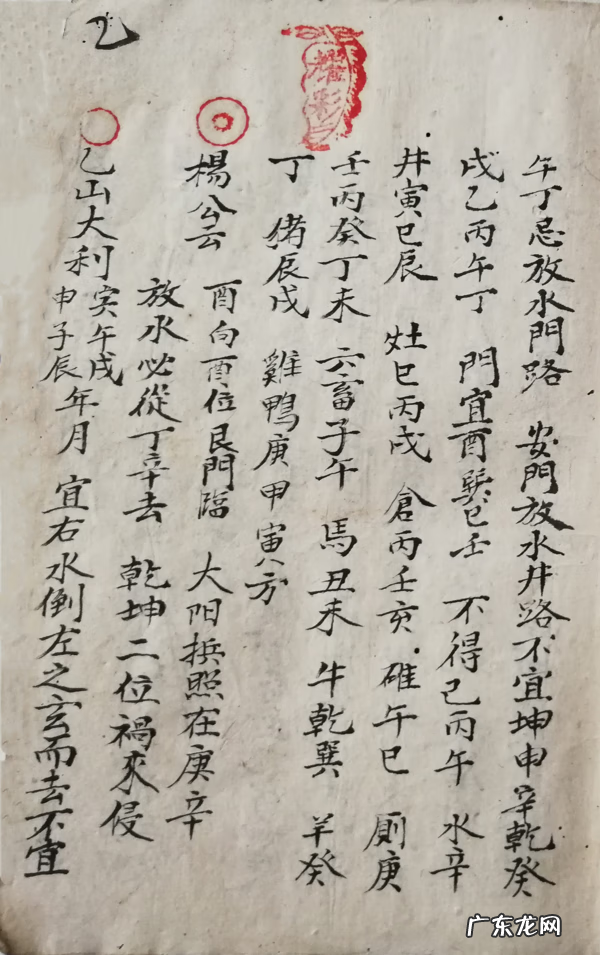 乙
耀彩
午丁忌放水門路 安門放水井路不宜坤申辛乾癸
戌乙丙午丁 門宜酉巽巳壬 不得巳丙午 水辛
井寅巳辰 灶巳丙戌 倉丙壬亥 碓午巳 厠庚
壬丙癸丁未 六畜子午 馬丑未 牛乾巽 羊癸
丁 猪辰戌 雞鴨庚甲寅方
楊公云 酉向酉位艮門臨 大阳拱照在庚辛
放水必從丁辛去 乾坤二位禍來侵
乙山大利寅午戌申子辰年月 宜右水倒左之玄而去不宜
广东龙网